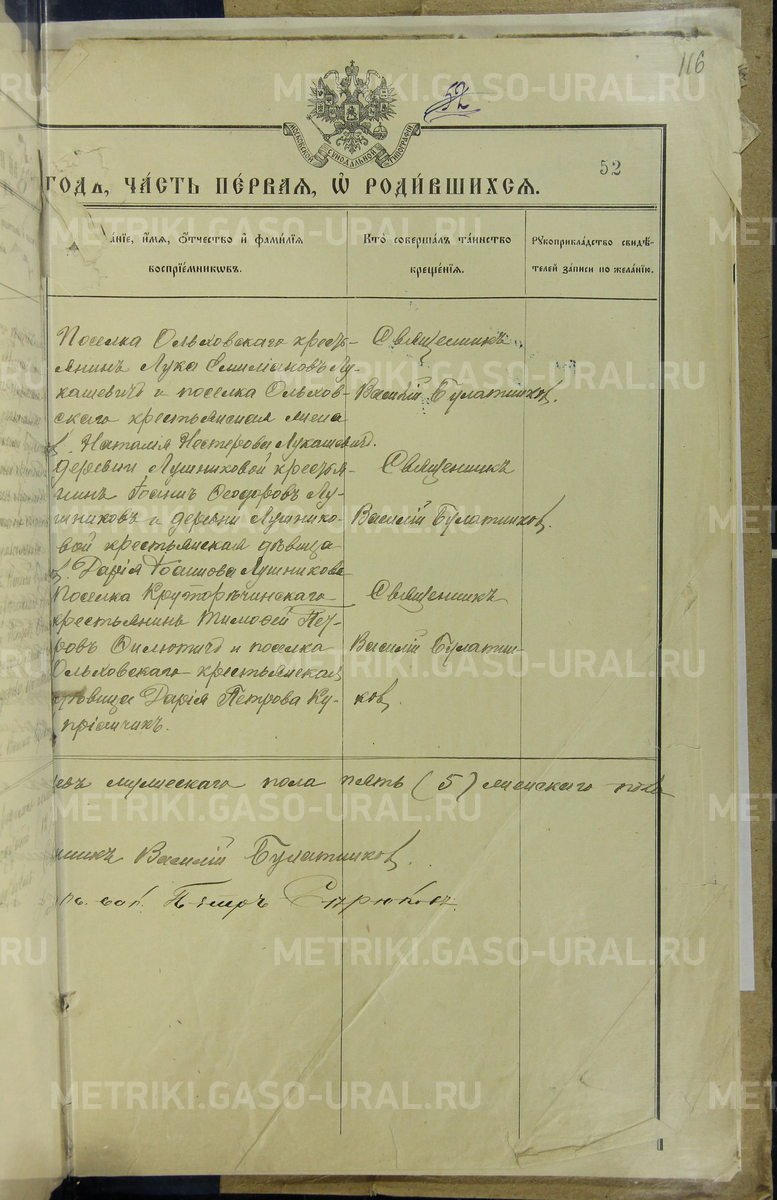 116
52
МОСКОВСКОЙ СѴНОДАЛЬНОЙ ТИПОГРАФІИ
52
ГОДЪ, ЧА́СТЬ ПЕ́РВАЯ, Ѽ РОДИ́ВШИХСЯ.
а́нїе, и́мя, о́тчество и҆ фами́лїя
воспрїе́мниковъ.
Кто̀ соверша́лъ та́инство
креще́нїя.
Рꙋкоприкла́дство свидѣ́-
телей за́писи по жела́нїю.
Поселка Ольховскаго кресть-
янинъ Лука Емиліановъ Лу-
кашевичъ и поселка Ольхов-
скаго крестьянская жена
Наталія Нестерова Лукашевичъ.
Священникъ
Василій Булатников.
деревни Лушниковой кресть-
янинъ Іоаннъ Феодоровъ Лу-
шниковъ и деревни Лушнико-
вой крестьянская дѣвица
Дарія Іоаннова Лушникова
Священникъ
Василій Булатников.
Поселка Круторѣчинскаго
крестьянинъ Тимофей Пет-
ровъ и поселка
Ольховскаго крестьянская
дѣвица Дарія Петрова Ку-
пріянчикъ.
Священникъ
Василій Булатни-
ков.
мужескаго пола пять (5) женскаго пола
нникъ Василій Булатников.
Петръ
METRIKI.GASO-URAL.RU